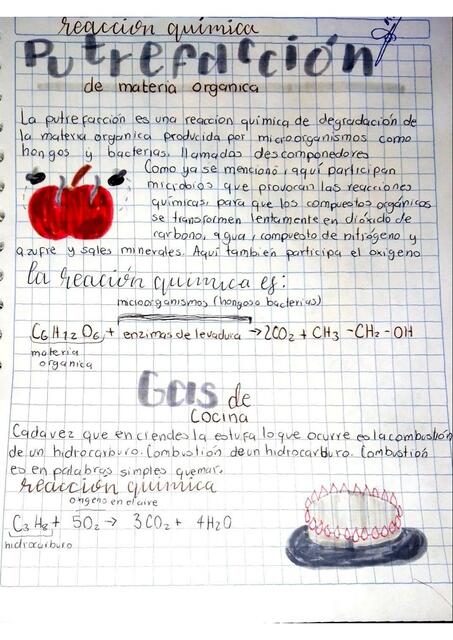 reacción química
Putrefacción
de materia organica
La putrefacción es una reaccion quimica de degradación de
la materia organica producida por microorganismos como
hongos y bacterias, llamados descomponedores
Como ya se menciono, aqui participan
microbios que provocan las reacciones
químicas, para que los compuestos orgánicos
se transformen lentamente en dióxido de
carbono, agua, compuesto de nitrógeno y
azufre y sales minerales. Aquí también participa el oxigeno
la reacción química es:
microorganismos (hongos o bacterias)
C6H12O6 + enzimas de levadura → 2CO2 + CH3 - CH2 - OH
materia
organica
Gas de
cocina
Cada vez que enciendes la estufa lo que ocurre es la combustión
de un hidrocarburo. Combustión de un hidrocarburo. Combustión
es en palabras simples quemar.
reacción química
oxigeno en el aire
C3H8 + 5O2 → 3CO2 + 4H2O
hidrocarburo